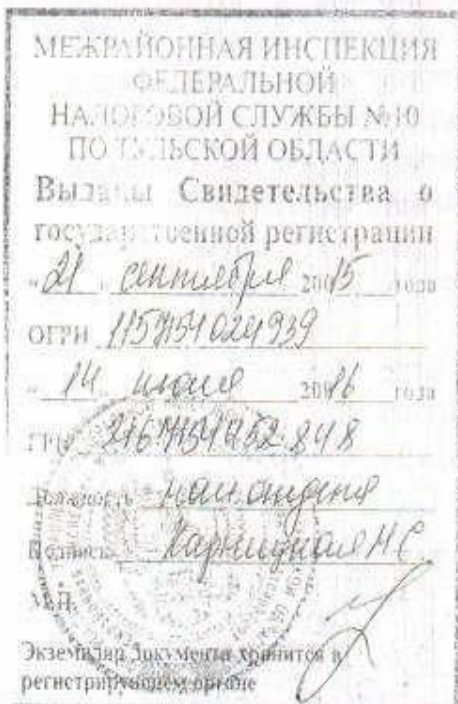 МЕЖРАЙОННАЯ ИНСПЕКЦИЯ
ФЕДЕРАЛЬНОЙ
НАЛОГОВОЙ СЛУЖБЫ №10
ПО ТУЛЬСКОЙ ОБЛАСТИ
Выданы Свидетельства о
государственной регистрации
"21" сентября 2015 года
ОГРН 1157154024939
"14" июня 2016 года
ГРН 2167154452848
Должность нач. отдела
Подпись Н С
М.П.
Экземпляр документа хранится в
регистрирующем органе